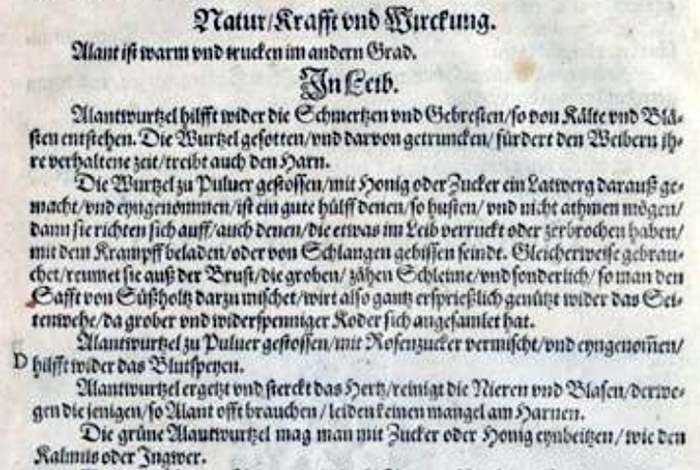 Natur/Krafft vnd Wirckung.
Alant ist warm vnd trucken im andern Grad.
In Leib.
Alantwurtzel hilfft wider die Schmertzen vnd Gebresten/so von Kälte vnd Blä-
sten entstehen. Die Wurtzel gesotten/vnd darvon getruncken/fürdert den Weibern jh-
re verhaltene zeit/treibt auch den Harn.
Die Wurtzel zu Puluer gestossen/mit Honig oder Zucker ein Latwerg darauß ge-
macht/vnd eyngenommen/ist ein gute hülff denen/so husten/vnd nicht athmen mögen/
dann sie richten sich auff/auch denen/die etwas im Leib verruckt oder zerbrochen haben/
mit dem Krampff beladen/oder von Schlangen gebissen seindt. Gleicherweise gebrau-
chet/reumet sie auß der Brust/die groben/zähen Schleime/vnd sonderlich/so man den
Safft von Süßholtz darzu mischet/wirt also gantz ersprießlich genützt wider das Sei-
tenwehe/da grober vnd widerspenniger Koder sich angesamlet hat.
Alantwurtzel zu Puluer gestossen/mit Rosenzucker vermischt/vnd eyngenom̃en/
D hilfft wider das Blutspeyen.
Alantwurtzel ergetzt vnd sterckt das Hertz/reinigt die Nieren vnd Blasen/derwe-
gen die jenigen/so Alant offt brauchen/leiden keinen mangel am Harnen.
Die grüne Alantwurtzel mag man mit Zucker oder Honig eynbeitzen/wie den
Kalmus oder Ingwer.